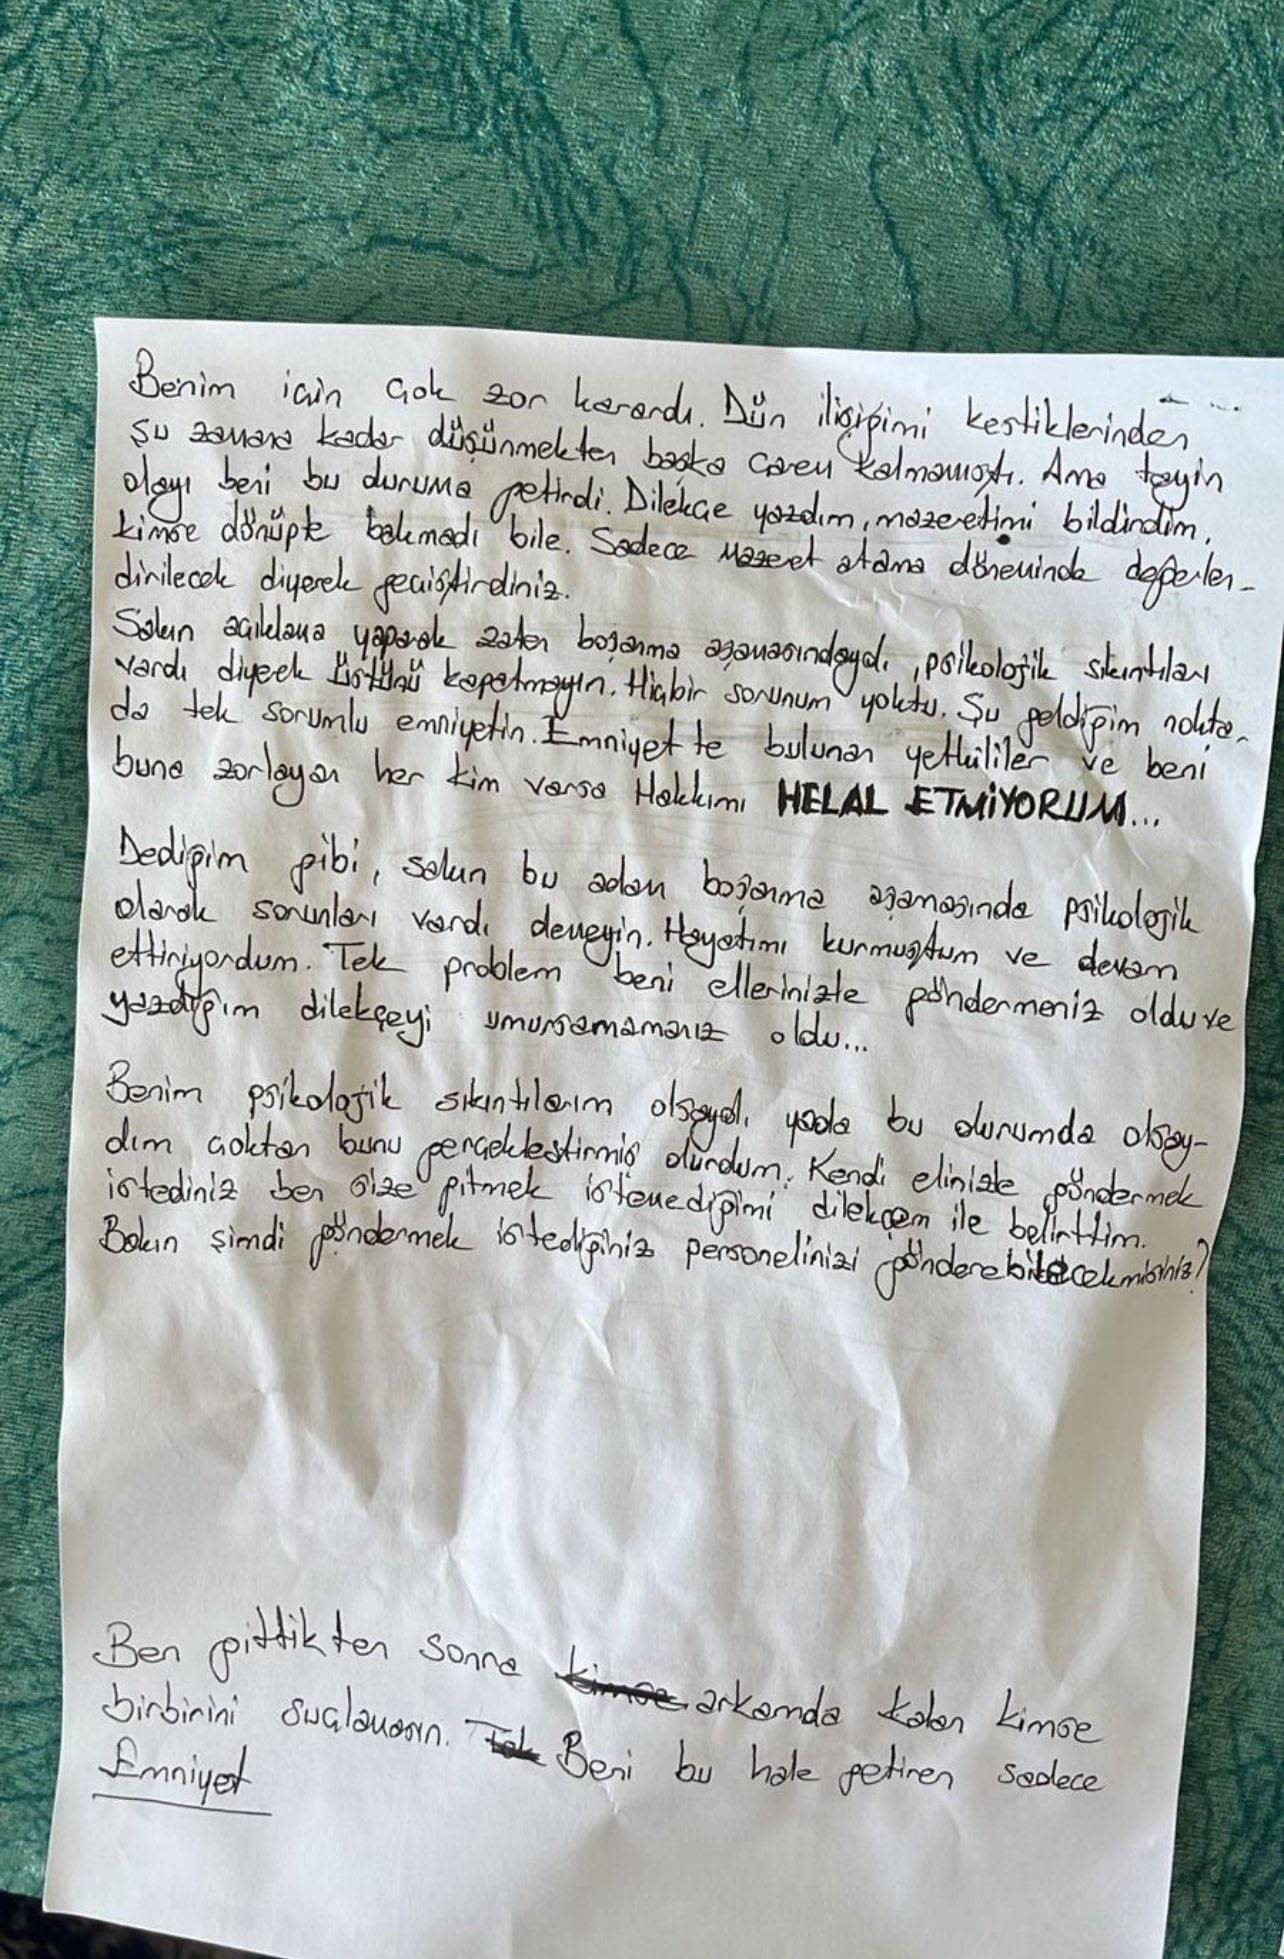 Benim için çok zor karardı. Dün ilişiğimi kestiklerinden
şu zamana kadar düşünmekten başka çarem kalmamıştı. Ama tayin
olayı beni bu duruma getirdi. Dilekçe yazdım, mazeretimi bildirdim,
kimse dönüpte bakmadı bile. Sadece Mazeret atama döneminde değerlen-
dirilecek diyerek geçiştirdiniz.
Sakın açıklama yaparak zaten boşanma aşamasındaydı, psikolojik sıkıntıları
vardı diyerek üstünü kapatmayın. Hiçbir sorunum yoktu. Şu geldiğim nokta-
da tek sorumlu emniyetin. Emniyet te bulunan yetkililer ve beni
buna zorlayan her kim varsa Hakkımı HELAL ETMİYORUM...
Dediğim gibi, sakın bu adam boşanma aşamasında psikolojik
olarak sorunları vardı demeyin. Hayatımı kurmuştum ve devam
ettiriyordum. Tek problem beni ellerinizle göndermeniz oldu ve
yazdığım dilekçeyi umursamamanız oldu...
Benim psikolojik sıkıntılarım olsaydı yada bu durumda olsay-
dım çoktan bunu gerçekleştirmiş olurdum. Kendi elinizle göndermek
istediniz ben size gitmek istemediğimi dilekçem ile belirttim.
Bakın şimdi göndermek istediğiniz personelinizi gönderebilecekmisiniz?
Ben gittikten sonra kimse arkamda kalan kimse
birbirini suçlamasın. Tek Beni bu hale getiren sadece
Emniyet